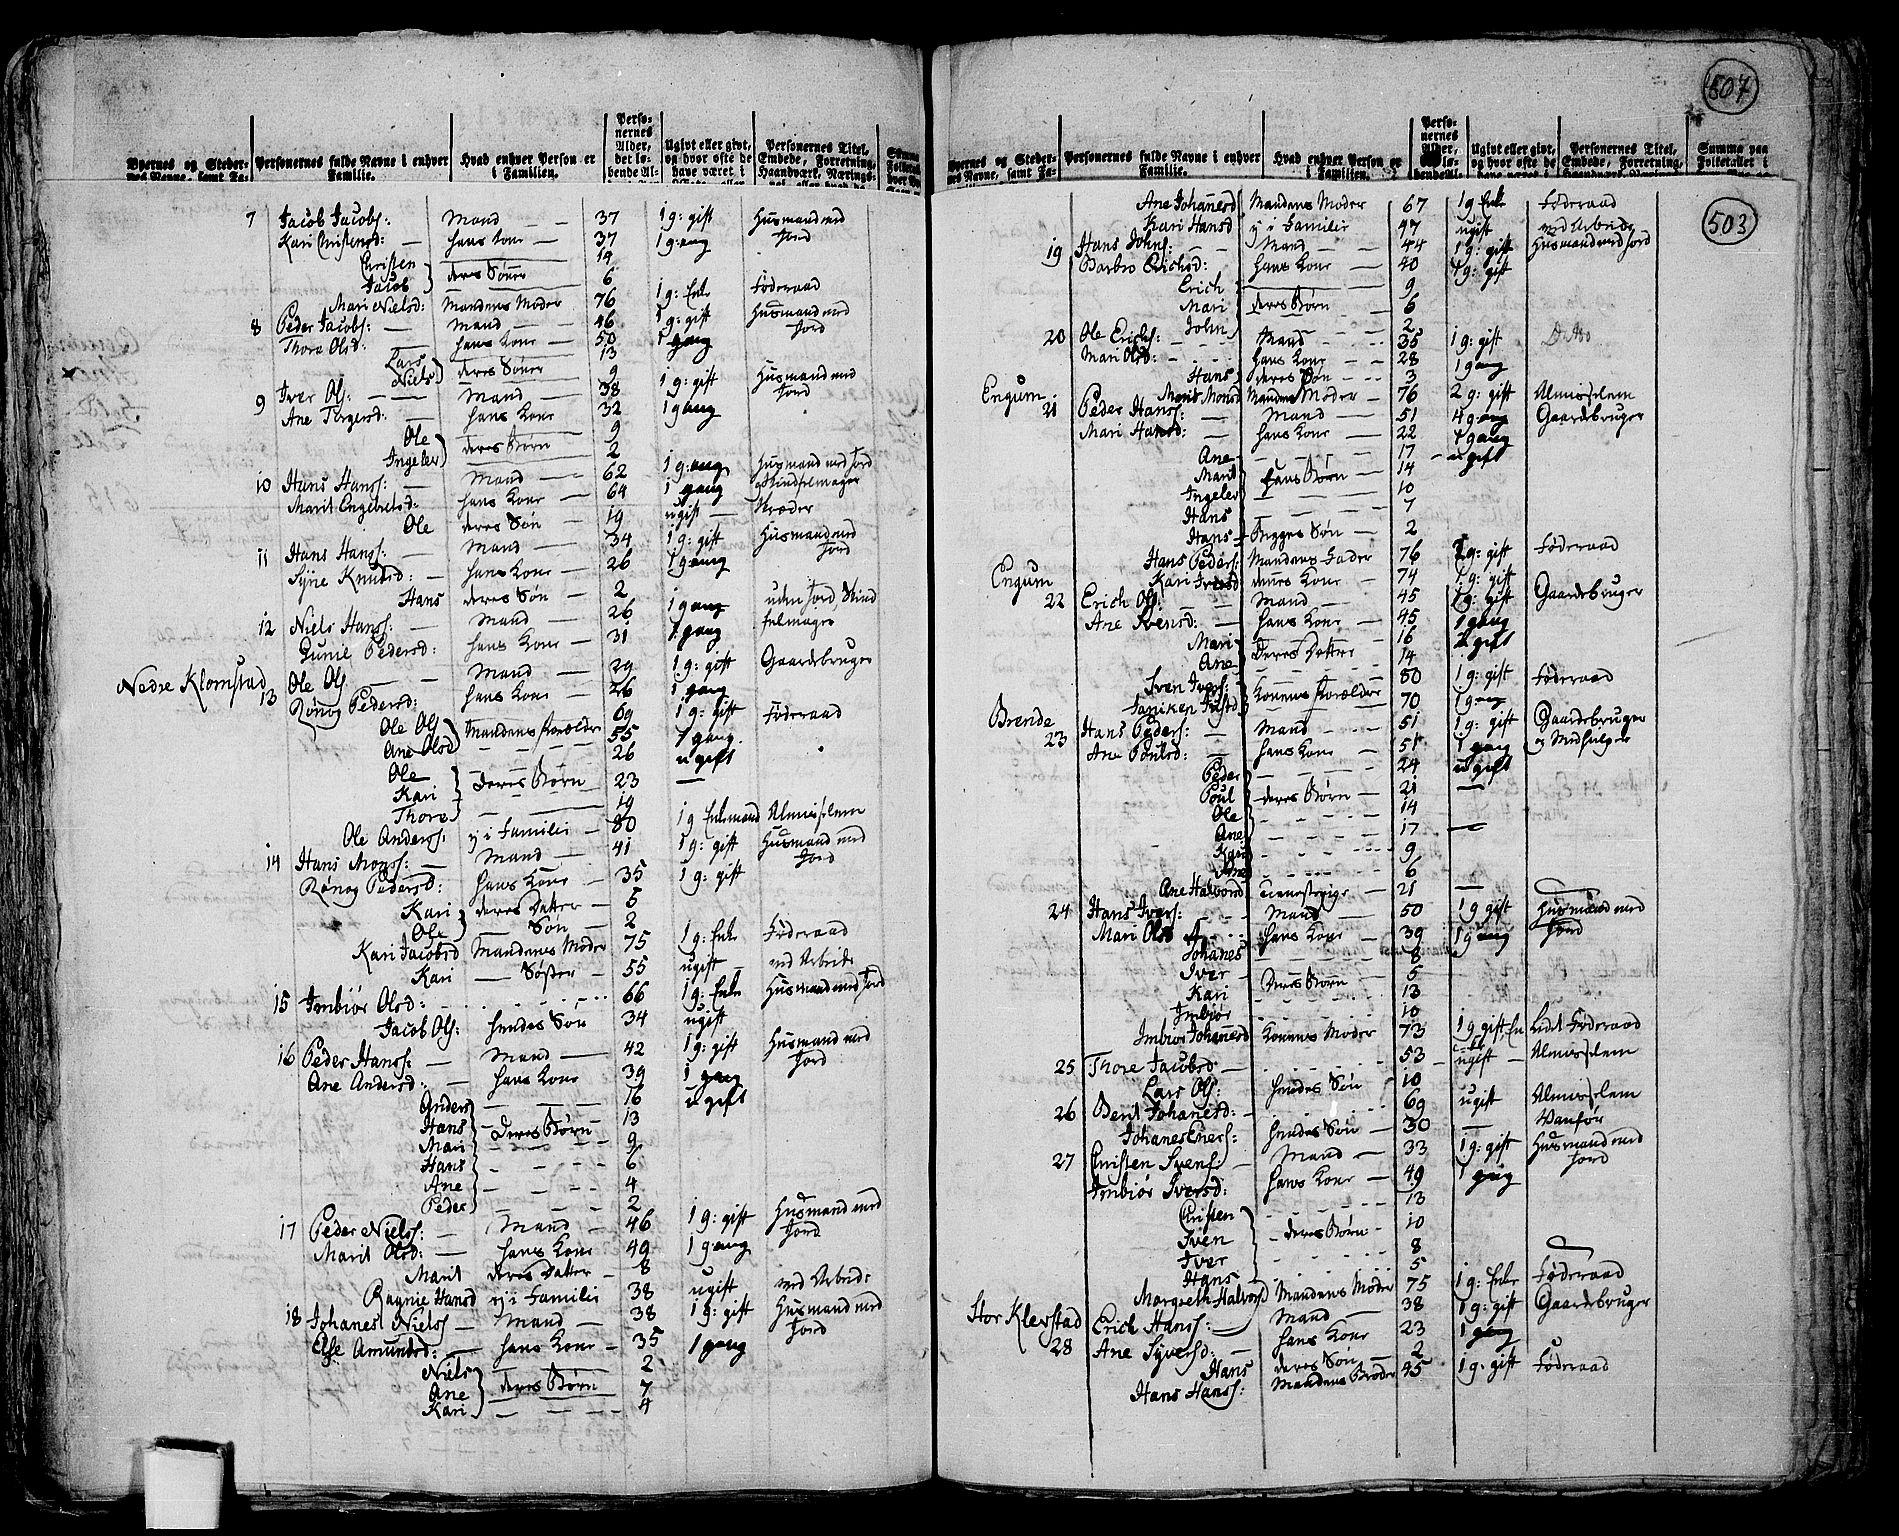 Byernes og Steder- Personernes fulde Navne i enhver Familie. Hvad enhver Person er i Familien. Perso-nernes Alder, det lø-bende Al- Ugivt eller givt, og hvor ofte de have været i Personernes Titel, Embede, Forretning, Haandværk, Nærings- Summa
7 Jacob Jacobs: Mand 37 1 g: gift Husmand med Jord
Kari Christensd: hans Kone 37 1 gang
Christen 14
Jacob deres Sönner 6
Mari Nielsd: Mandens Moder 76 1 g: Enke Föderaad
8 Peder Jacobs: Mand 46 1 g: gift Husmand med Jord
Thore Olsd: hans Kone 50 1 gang
Lars 13
Niels deres Sönner 9
9 Iver Ols: Mand 38 1 g: gift Husmand med Jord
Ane Torgersd: hans Kone 32 1 gang
Ole 9
Ingelev deres Börn 2
10 Hans Hanss: Mand 62 1 g: gang Husmand med Jord
Marit Engebretsd: hans Kone 64 1 gang Skindfelmager
Ole deres Sön 19 ugift Skræder
11 Hans Hanss: Mand 34 1 g: gift Husmand med Jord
Syne Knudsd: hans Kone 26 1 gang
Hans deres Sön 2
12 Niels Hanss: Mand 26 1 gang uden Jord, Skind
Gunil Pedersd: hans Kone 31 1 gang felmager
Nedre Klomstad
13 Ole Ols Mand 29 1 g: gift Gaardebruger
Rönog Pedersd: hans Kone 26 1 gang
Ole Ols Mandens Forældre 69 1 g: gift Föderaad
Ane Olsd 55 1 gang
Ole 26 ugift
Kari deres Börn 23
Thore 19
Ole Anderss: i Familie 80 1 g Enkemand Almisselem
14 Hans Monss: Mand 41 1 g: gift Husmand med Jord
Rönog Pedersd: hans Kone 35 1 g: gift
Kari deres Datter 5
Ole Sön 2
Kari Jacobsd Mandens Moder 75 1 g: Enke Föderaad
Kari Söster 55 ugift ved Arbeide
15 Imbiör Olsd: 66 1 g: Enke Husmand med Jord
Jacob Ols: hendes Sön 34 ugift
16 Peder Hanss: Mand 42 1 g: gift Husmand med Jord
Ane Andersd: hans Kone 39 1 gang
Anders 16 ugift
Hans 13
Mari deres Börn 9
Hans 6
Ane 4
Peder 2
17 Peder Nielss: Mand 46 1 g: gift Husmand med Jord
Marit Olsd: hans Kone 49 1 gang
Marit deres Datter 8
Ragnie Hansd i Familie 38 ugift ved Arbeide
18 Johanes Nielss Mand 38 1 g: gift Husmand med Jord
Else Amundsd: hans Kone 35 1 gang
Niels 2
Ane deres Börn 7
Kari 4
507
503
Byernes og Steder- Personernes fulde Navne i enhver Familie. Hvad enhver Person er i Familien. Perso-nernes Alder, Ugivt eller givt, og hvor ofte de Personernes Titel, Embede, Forretning, Summa paa Folketallet i
Ane Johanesd Mandens Moder 67 1 g Enke Föderaad
Kari Hansd i Familie 47 ugift ved Arbeide
19 Hans Johns: Mand 44 1 g: gift Husmand med Jord
Barbro Erichsd: hans Kone 40 1 g: gift
Erich 9
Mari deres Börn 6
John 2
20 Ole Erichs: Mand 35 1 g: gift Ditto
Mari Olsd: hans Kone 28 1 gang
Hans deres Sön 3
Engum
Marit Monsd Mandens Moder 76 2 g: gift Almisselem
21 Peder Hanss: Mand 51 4 gang Gaardebruger
Mari Hansd: hans Kone 22 1 gang
Ane 17 ugift
Marit 14
Ingelev hans Börn 10
Hans 7
Hans Begges Sön 2
Hans Peders: Mandens Fader 76 1 g: gift Föderaad
Engum
Kari Iversd dennes Kone 74 1 g: gift
22 Erich Ols: Mand 45 1 g: gift Gaardebruger
Ane Svensd: hans Kone 45 1 gang
Mari 16 ugift
Ane deres Dötter 14
Sven Ivers: 80 1 g: gift Föderaad
Konens Forældre 70 1 gang
Brende
23 Hans Peders: Mand 51 1 g: gift Gaardebruger
Ane Poulsd: hans Kone 51 1 gang og Medhielper
Peder 24 ugift
Poul deres Börn 21
Ole 14
Ane 17
Kari 9
Ane 6
Ane Halvorsd Tienestepige 21
24 Hans Ivers: Mand 50 1 g gift Husmand med Jord
Mari Olsd hans Kone 39 1 gang
Johanes 8
Iver deres Börn 5
Kari 13
Imbiör 10
Imbiör Johanesd Konens Moder 73 1 g gift, En lidet Föderaad
25 Thore Jacobsd 53 ugift Almisselem
Lars Ols: hendes Sön 10
26 Berit Johanesd: 69 ugift Almisselem
Johanes Eners: hendes Sön 30 Vanför
27 Christen Svens: Mand 33 1 g: gift Husmand med Jord
Imbiör Iversd: hans Kone 49 1 gang
Christen 13
Sven deres Börn 10
Iver 8
Hans 5
Margreth Halvorsd Mandens Moder 75 1 g: Enke Föderaad
Stor Klevstad
28 Erich Hanss: Mand 38 1 g: gift Gaardebruger
Ane Syversd: hans Kone 23 1 gang
Hans deres Sön 2
Hans Hanss: Mandens Broder 45 1 g: gift Föderaad